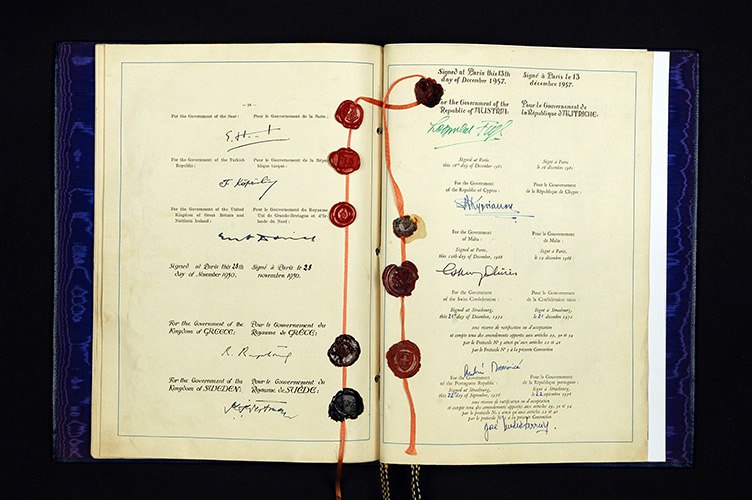 — 18 —
For the Government of the Saar: Pour le Gouvernement de la Sarre:
For the Government of the Turkish Republic: Pour le Gouvernement de la République turque:
For the Government of the United Kingdom of Great Britain and Northern Ireland: Pour le Gouvernement du Royaume Uni de Grande-Bretagne et d'Irlande du Nord:
Signed at Paris this 28th day of November 1950. Signé à Paris le 28 novembre 1950.
For the Government of the Kingdom of GREECE: Pour le Gouvernement du Royaume de GRÈCE:
For the Government of the Kingdom of SWEDEN: Pour le Gouvernement du Royaume de SUÈDE:
Signed at Paris this 13th day of December 1957. Signé à Paris le 13 décembre 1957.
For the Government of the Republic of AUSTRIA: Pour le Gouvernement de la République d'AUTRICHE:
Leopold Figl
Signed at Paris this 16th day of December 1961 Signé à Paris le 16 décembre 1961
For the Government of the Republic of Cyprus: Pour le Gouvernement de la République de Chypre:
Signed at Paris, this 12th day of December 1966 Signé à Paris, le 12 décembre 1966
For the Government of Malta: Pour le Gouvernement de Malte:
For the Government of the Swiss Confederation: Pour le Gouvernement de la Confédération suisse:
Signed at Strasbourg, this 21st day of December, 1972 Signé à Strasbourg, le 21 décembre 1972
sous réserve de ratification ou d'acceptation
et compte tenu des amendements apportés aux articles 29, 30 et 34
par le Protocole N° 3 ainsi qu'aux articles 22 et 40
par le Protocole N° 5 à la présente Convention
For the Government of the Portuguese Republic: Pour le Gouvernement de la République portugaise:
Signed at Strasbourg, this 22 day of September, 1976 Signé à Strasbourg, le 22 septembre 1976
sous réserve de ratification et d'acceptation
et compte tenu des amendements apportés aux articles 29, 30 et 34
par le Protocole N° 3 ainsi qu'aux articles 22 et 40
par le Protocole N° 5 à la présente Convention